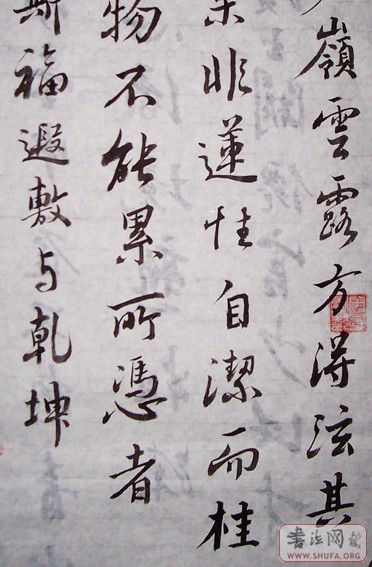 嶺雲露方得泫其
非蓮性自潔而桂
物不能累所憑者
斯福遐敷与乾坤
書法網
WWW.SHUFA.ORG